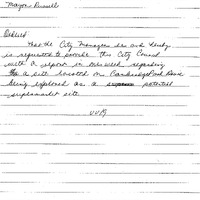 Mayor Russell
Ordered:
That the City Manager be and hereby
is requested to provide this City Council
with a report in one week regarding
a site located on Cambridge Park Drive
being explored as a potential
supermarket site.